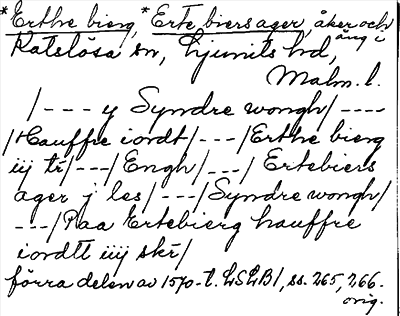 *Erthe bierg, *Erte biers ager, åker och
äng i
Katslösa sn, Ljunits hd,
Malm. l.
/--- y Syndre wongh/----
/Hauffre iordt/---/Erthe bierg
iiij tr/---/Engh/---/ Ertebiers
ager j les/---/Syndre wongh/
---/Paa Ertebierg hauffre
iordtt iiij skr/
förra delen av 1570-t. LSLB1, ss. 265, 266.
orig.